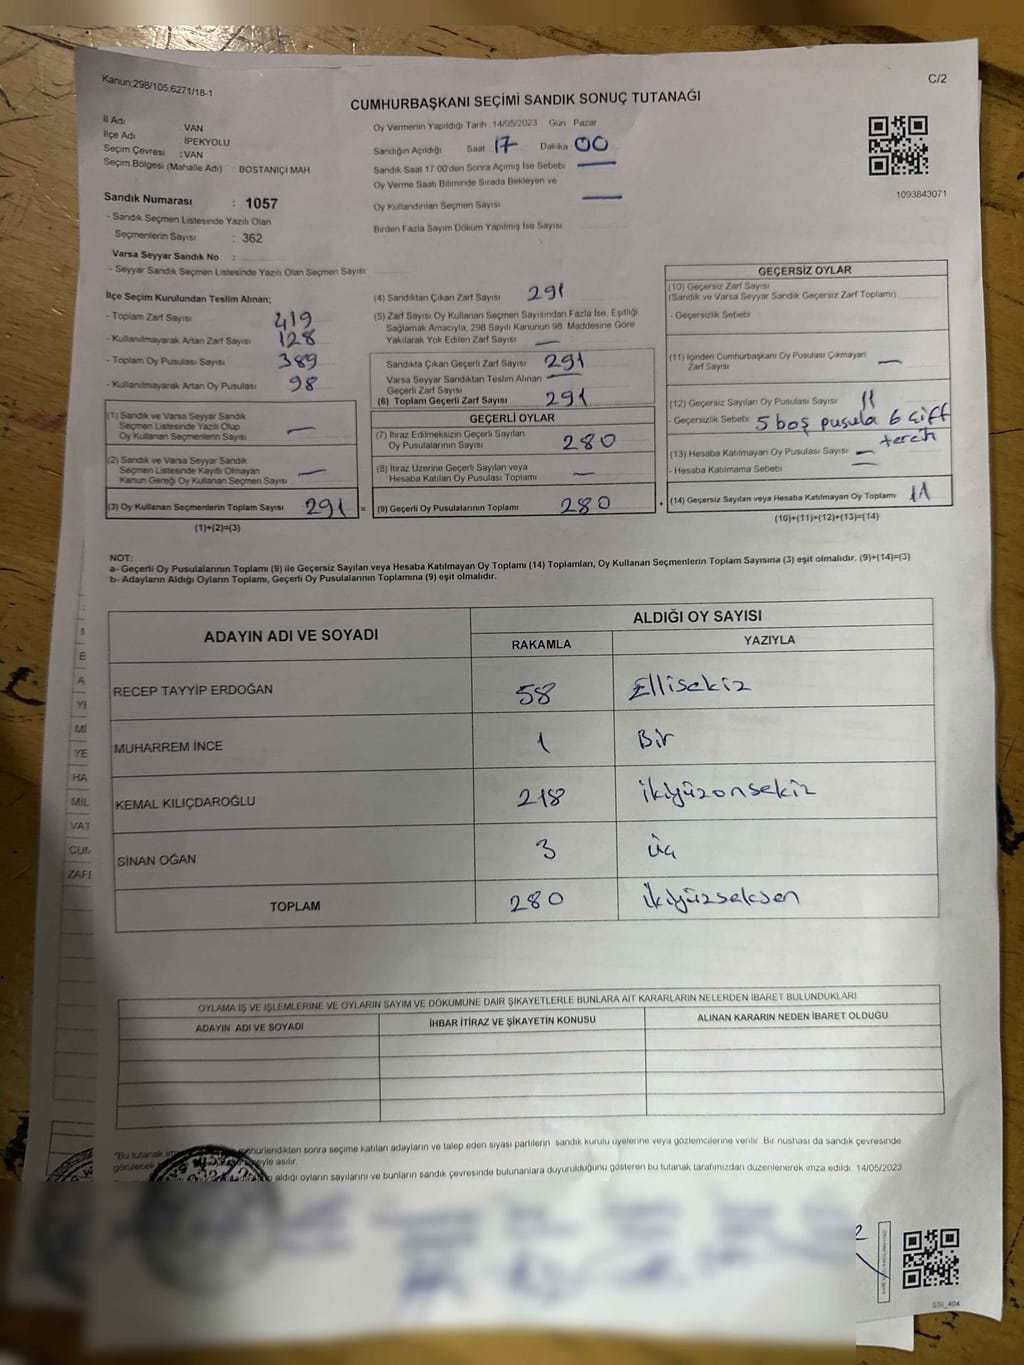 Kanun:298/105,6271/18-1
C/2
CUMHURBAŞKANI SEÇİMİ SANDIK SONUÇ TUTANAĞI
İl Adı : VAN
İlçe Adı İPEKYOLU
Seçim Çevresi : VAN
Seçim Bölgesi (Mahalle Adı) : BOSTANİÇİ MAH
Sandık Numarası : 1057
- Sandık Seçmen Listesinde Yazılı Olan
Seçmenlerin Sayısı : 362
Varsa Seyyar Sandık No :
- Seyyar Sandık Seçmen Listesinde Yazılı Olan Seçmen Sayısı
Oy Vermenin Yapıldığı Tarih : 14/05/2023 Gün : Pazar
Sandığın Açıldığı Saat 17 Dakika 00
Sandık Saat 17:00'den Sonra Açımış İse Sebebi —
Oy Verme Saati Bitiminde Sırada Bekleyen ve
Oy Kullandırılan Seçmen Sayısı —
Birden Fazla Sayım Döküm Yapılmış İse Sayısı
1093843071
İlçe Seçim Kurulundan Teslim Alınan;
- Toplam Zarf Sayısı 419
- Kullanılmayarak Artan Zarf Sayısı 128
- Toplam Oy Pusulası Sayısı 389
- Kullanılmayarak Artan Oy Pusulası 98
(1) Sandık ve Varsa Seyyar Sandık
Seçmen Listesinde Yazılı Olup
Oy Kullanan Seçmenlerin Sayısı —
(2) Sandık ve Varsa Seyyar Sandık
Seçmen Listesinde Kayıtlı Olmayan
Kanun Gereği Oy Kullanan Seçmen Sayısı —
(3) Oy Kullanan Seçmenlerin Toplam Sayısı 291 =
(1)+(2)=(3)
(4) Sandıktan Çıkan Zarf Sayısı 291
(5) Zarf Sayısı Oy Kullanan Seçmen Sayısından Fazla İse, Eşitliği
Sağlamak Amacıyla, 298 Sayılı Kanunun 98. Maddesine Göre
Yakılarak Yok Edilen Zarf Sayısı —
Sandıkta Çıkan Geçerli Zarf Sayısı 291
Varsa Seyyar Sandıktan Teslim Alınan
Geçerli Zarf Sayısı —
(6) Toplam Geçerli Zarf Sayısı 291
GEÇERLİ OYLAR
(7) İtiraz Edilmeksizin Geçerli Sayılan
Oy Pusulalarının Sayısı 280
(8) İtiraz Üzerine Geçerli Sayılan veya
Hesaba Katılan Oy Pusulası Toplamı —
(9) Geçerli Oy Pusulalarının Toplamı 280 +
GEÇERSİZ OYLAR
(10) Geçersiz Zarf Sayısı
(Sandık ve Varsa Seyyar Sandık Geçersiz Zarf Toplamı)
- Geçersizlik Sebebi
(11) İçinden Cumhurbaşkanı Oy Pusulası Çıkmayan
Zarf Sayısı —
(12) Geçersiz Sayılan Oy Pusulası Sayısı 11
- Geçersizlik Sebebi 5 boş pusula 6 çift
tercih
(13) Hesaba Katılmayan Oy Pusulası Sayısı —
- Hesaba Katılmama Sebebi —
(14) Geçersiz Sayılan veya Hesaba Katılmayan Oy Toplamı 11
(10)+(11)+(12)+(13)=(14)
NOT:
a- Geçerli Oy Pusulalarının Toplamı (9) ile Geçersiz Sayılan veya Hesaba Katılmayan Oy Toplamı (14) Toplamları, Oy Kullanan Seçmenlerin Toplam Sayısına (3) eşit olmalıdır. (9)+(14)=(3)
b- Adayların Aldığı Oyların Toplamı, Geçerli Oy Pusulalarının Toplamına (9) eşit olmalıdır.
ADAYIN ADI VE SOYADI
ALDIĞI OY SAYISI
RAKAMLA YAZIYLA
RECEP TAYYİP ERDOĞAN 58 Ellisekiz
MUHARREM İNCE 1 Bir
KEMAL KILIÇDAROĞLU 218 ikiyüzonsekiz
SİNAN OĞAN 3 üç
TOPLAM 280 ikiyüzseksen
OYLAMA İŞ VE İŞLEMLERİNE VE OYLARIN SAYIM VE DÖKÜMÜNE DAİR ŞİKAYETLERLE BUNLARA AİT KARARLARIN NELERDEN İBARET BULUNDUKLARI
ADAYIN ADI VE SOYADI İHBAR İTİRAZ VE ŞİKAYETİN KONUSU ALINAN KARARIN NEDEN İBARET OLDUĞU
"Bu tutanak mühürlendikten sonra seçime katılan adayların ve talep eden siyasi partilerin sandık kurulu üyelerine veya gözlemcilerine verilir. Bir nüshası da sandık çevresinde
görülecek asılır.
aldığı oyların sayılarını ve bunların sandık çevresinde bulunanlara duyurulduğunu gösteren bu tutanak tarafımızdan düzenlenerek imza edildi. 14/05/2023
MİL
VAT
ZAFE
SSİ_404